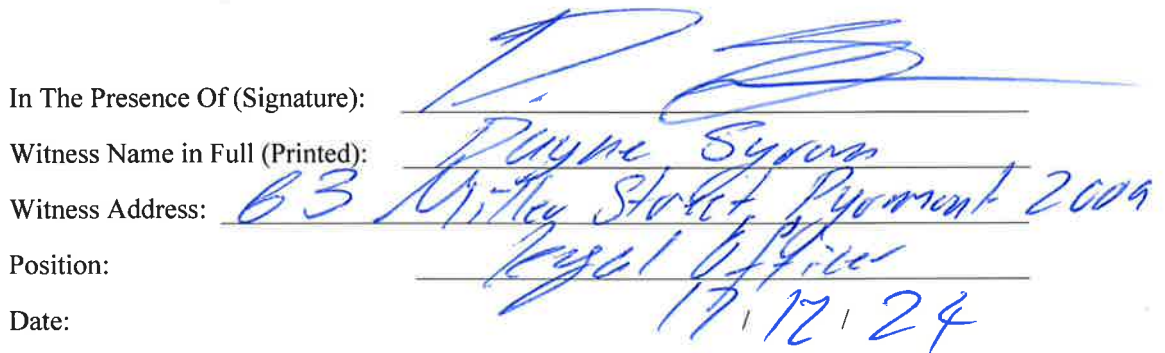 In The Presence Of (Signature):
Witness Name in Full (Printed): Dayne Syron
Witness Address: 63 Miller Street, Pyrmont 2009
Position: Legal Officer
Date: 17 / 12 / 24